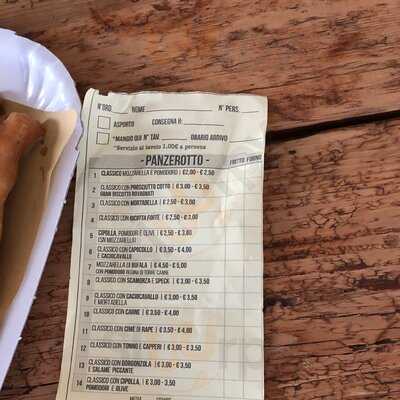 N°ORD. NOME N° PERS.
ASPORTO CONSEGNA H:
*MANGIO QUI N° TAV. ORARIO ARRIVO
*Servizio al tavolo 1,00€ a persona
- PANZEROTTO - FRITTO FORNO
1 CLASSICO MOZZARELLA E POMODORO | €2,00 - € 2,50
2 CLASSICO CON PROSCIUTTO COTTO | € 3,00 - € 3,50
GRAN BISCOTTO ROVAGNATI
3 CLASSICO CON MORTADELLA | € 2,50 - € 3,00
4 CLASSICO CON RICOTTA FORTE | € 2,50 - € 3,00
5 CIPOLLA, POMODORI E OLIVE | € 2,50 - € 3,80
(CON MOZZARELLA)
6 CLASSICO CON CAPOCOLLO | € 3,50 - € 4,00
E CACIOCAVALLO
7 MOZZARELLA DI BUFALA | € 4,50 - € 5,00
CON POMODORO REGINA DI TORRE CANNE
8 CLASSICO CON SCAMORZA E SPECK | € 3,00 - € 3,50
9 CLASSICO CON CACIOCAVALLO | € 3,00 - € 3,50
E MORTADELLA
10 CLASSICO CON CARNE | € 3,50 - € 4,00
11 CLASSICO CON CIME DI RAPE | € 3,50 - € 4,00
12 CLASSICO CON TONNO E CAPPERI | € 3,00 - € 3,50
13 CLASSICO CON GORGONZOLA | € 3,00 - € 3,50
E SALAME PICCANTE
14 CLASSICO CON CIPOLLA, | € 3,00 - 3,50
POMODORI E OLIVE